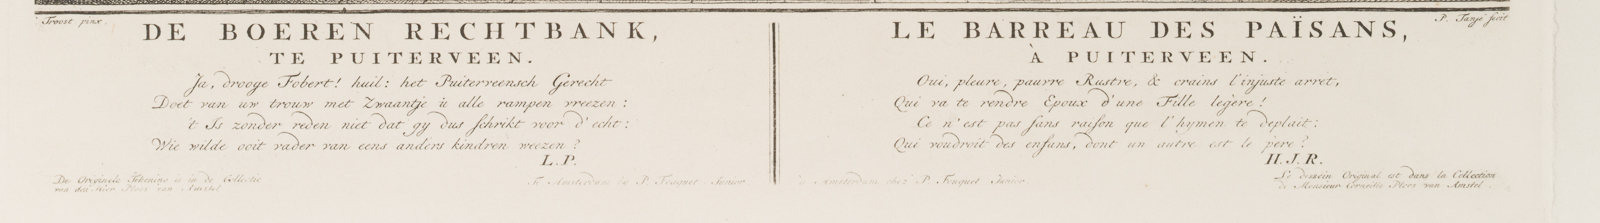 Troost pinx.
DE BOEREN RECHTBANK,
TE PUITERVEEN.
Ja, drooge Fobert! huil: het Puiterveensch Gerecht
Doet van uw trouw met Zwaantje ù alle rampen vreezen:
't Is zonder reden niet dat gy dus schrikt voor d' echt:
Wie wilde ooit vader van eens anders kindren weezen?
L. P.
De Origineele Tekening is in de Collectie
van den Heer Ploos van Amstel
Te Amsterdam by P. Fouquet Junior
P. Tanjé fecit
LE BARREAU DES PAÏSANS,
À PUITERVEEN.
Oui, pleure, pauvre Rustre, & crains l'injuste arret,
Qui va te rendre Epoux d'une Fille legère!
Ce n'est pas sans raison que l'hymen te deplait:
Qui voudroit des enfans, dont un autre est le pere?
H. J. R.
à Amsterdam chez P. Fouquet Junior
Le dessein Original est dans la Collection
de Monsieur Corneille Ploos van Amstel